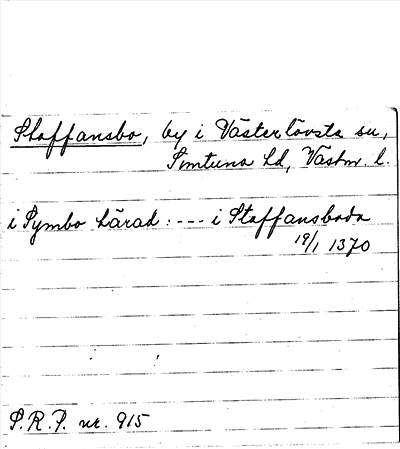 Staffansbo, by i Västerlövsta sn,
Simtuna hd, Västm. l.
i Symbo härad: --- i Staffansboda
19/1 1370
S.R.P. nr. 915